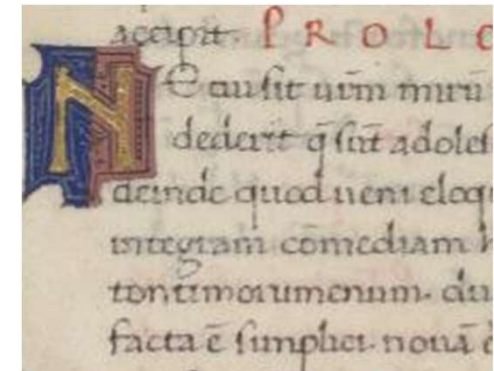 accipit PROLO
NE cui sit ur̄m mirū
dederit q̄ sūt adoles
deinde quod ueni eloq
integram cōmediam h
tontimorumenum. du
facta ē simplici. nouā e